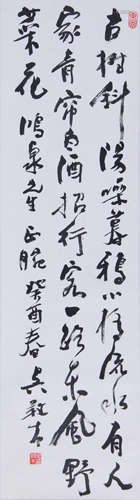 古樹斜陽噪暮鴉小橋流水有人
家青帘白酒招行客一路東風野
菜花 鴻泉先生正腕 癸酉春 吳